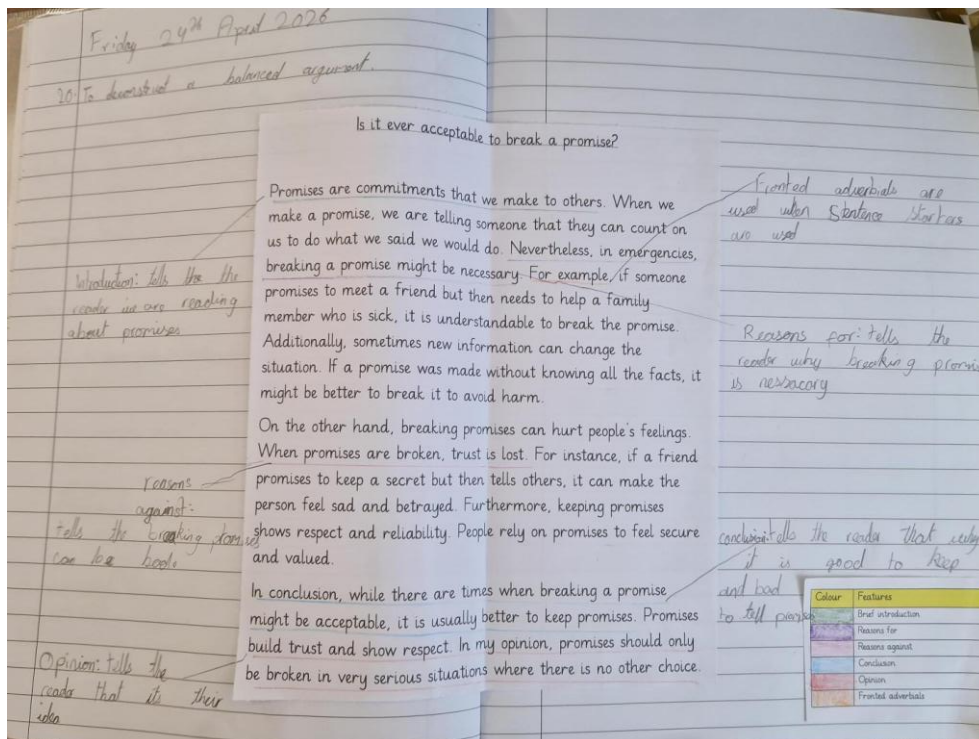 Friday 24th April 2026
20. To deconstruct a balanced argument.
Is it ever acceptable to break a promise?
Promises are commitments that we make to others. When we
make a promise, we are telling someone that they can count on
us to do what we said we would do. Nevertheless, in emergencies,
breaking a promise might be necessary. For example, if someone
promises to meet a friend but then needs to help a family
member who is sick, it is understandable to break the promise.
Additionally, sometimes new information can change the
situation. If a promise was made without knowing all the facts, it
might be better to break it to avoid harm.
On the other hand, breaking promises can hurt people's feelings.
When promises are broken, trust is lost. For instance, if a friend
promises to keep a secret but then tells others, it can make the
person feel sad and betrayed. Furthermore, keeping promises
shows respect and reliability. People rely on promises to feel secure
and valued.
In conclusion, while there are times when breaking a promise
might be acceptable, it is usually better to keep promises. Promises
build trust and show respect. In my opinion, promises should only
be broken in very serious situations where there is no other choice.
Introduction: tells the the
reader are reading
about promises
reasons
against:
tells the breaking
can be bad.
Opinion: tells the
reader that its their
idea
Fronted adverbials are
used when Sentence Starters
are used
Reasons for: tells the
reader why breaking
is nessacory
conclusion: tells the reader that
it is good to keep
and bad
to tell
Colour Features
Brief introduction
Reasons for
Reasons against
Conclusion
Opinion
Fronted adverbials